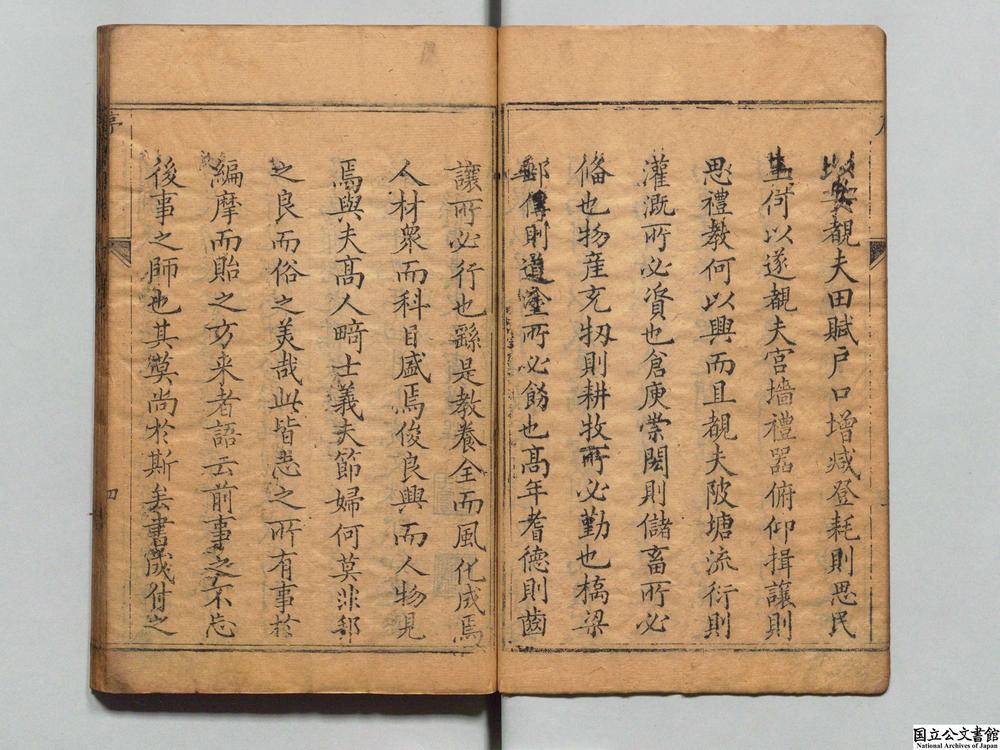 以安覩夫田賦戶口增减登耗則思民
生何以遂覩夫宮墻禮器俯仰揖讓則
思禮教何以興而且覩夫陂塘流衍則
灌溉所必資也倉庾崇閎則儲畜所必
俻也物産充牣則耕牧所必勤也橋梁
郵傳則道塗所必飭也髙年耆德則齒
讓所必行也繇是教養全而風化成焉
人材衆而科目盛焉俊良興而人物見
焉與夫髙人畸士義夫節婦何莫非郵
之良而俗之美哉此皆志之所有事於
編摩而貽之方来者語云前事之不忘
後事之師也其莫尚於斯矣書成付之
序
四
国立公文書館
National Archives of Japan